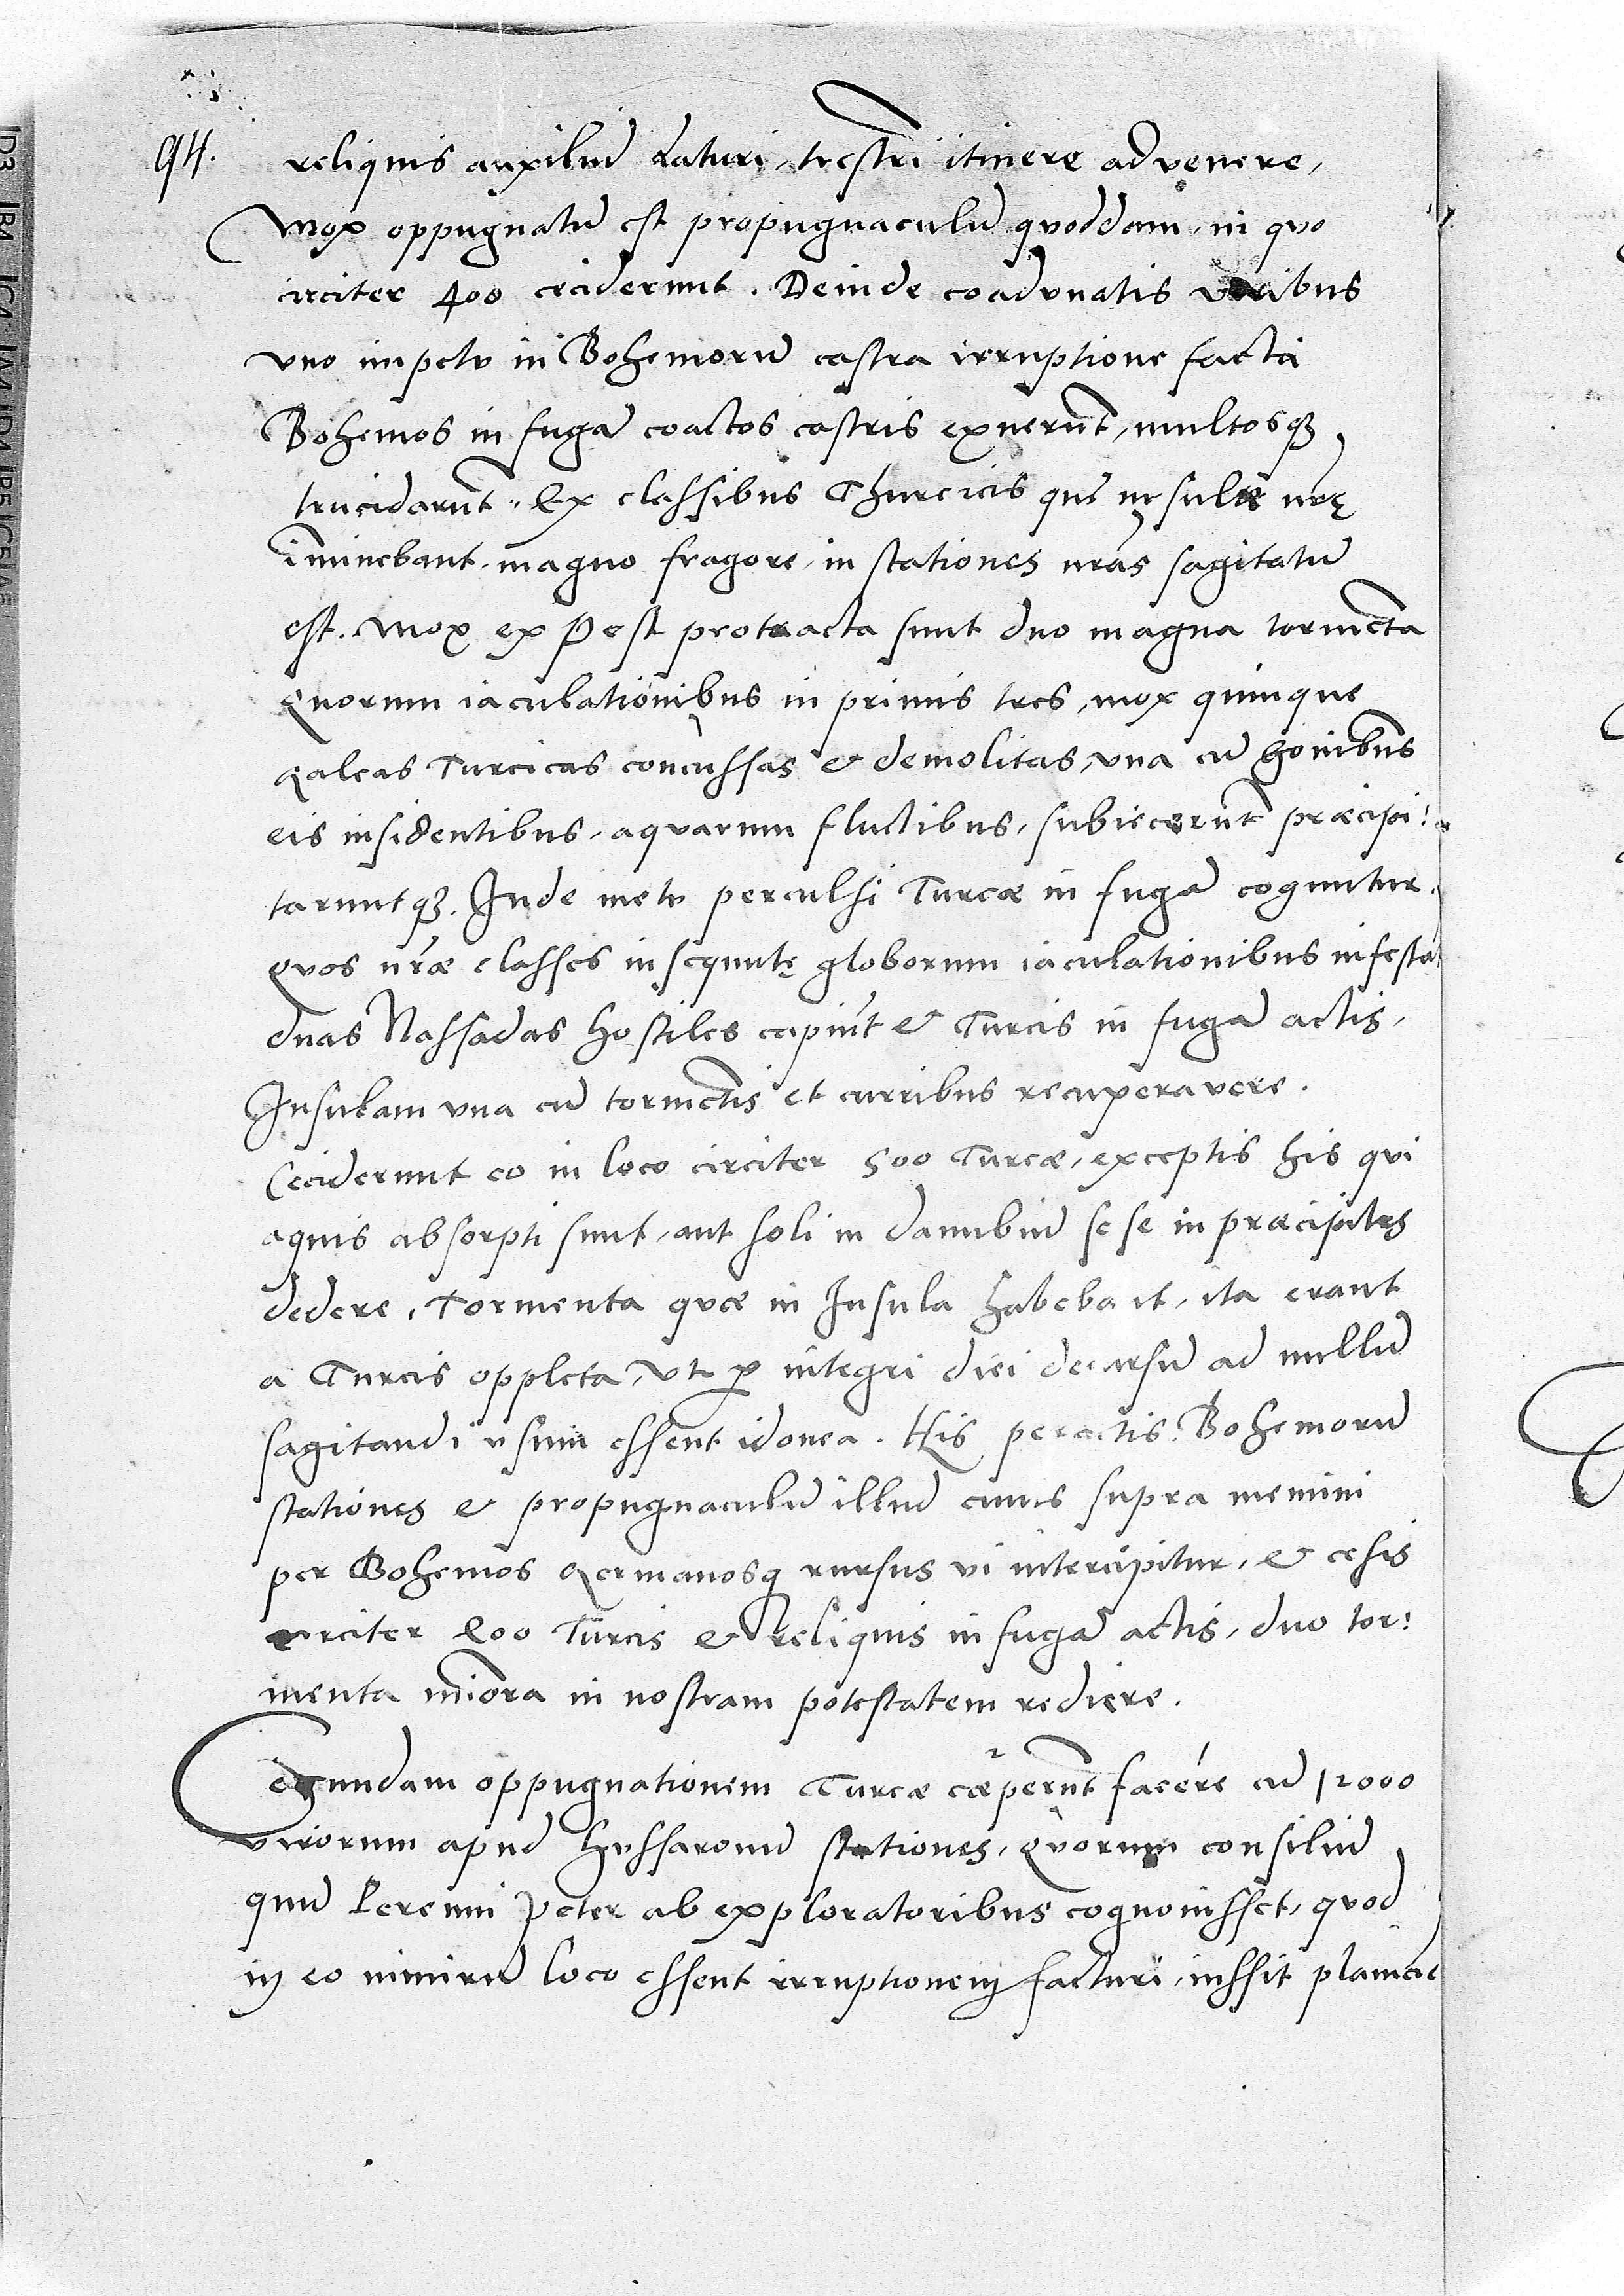 94.
reliquis auxiliū daturi, trestri itinere advenere,
Mox oppugnatū est propugnaculū quoddam, in quo
circiter 400 ceciderunt. Deinde coadunatis viribus
uno impetu in Bohemorū castra irruptione facta
Bohemos in fugā coactos castris exuerūt, multosq3
trucidarūt. Ex classibus Thurcicis que insulæ nr̄ę
im̄inebant, magno fragore, in stationes nr̄as sagitatū
est. Mox ex Pest protracta sunt duo magna tormēta
Quorum iaculationibus in primis tres, mox quinque
Galeas Turcicas concussas & demolitas, una cū hōinibus
eis insidentibus, aquarum fluctibus, subiecerūt præcipi:
taruntq3. Inde metu perculsi Turcæ in fugā coguntur.
Quos nr̄æ classes insequutę globorum iaculationibus infesta
duas Nassadas hostiles capiūt & Turcis in fugā actis,
Insulam una cū tormētis et curribus recuperavere.
Ceciderunt eo in loco circiter 500 Turcæ, exceptis his qui
aquis absorpti sunt, aut soli in danubiū sese in præcipites
dedere, Tormenta quæ in Insula habebant, ita erant
a Turcis oppleta, ut ꝑ integri diei decursū ad nullū
sagitandi usum essent idonea. His peractis: Bohemorū
stationes & propugnaculū illud cuius supra memini
per Bohemos Germanosq rursus vi intercipitur, & cesis
circiter 200 Turcis & Reliquis in fugā actis, duo tor:
menta miōra in nostram potestatem rediere.
Secundam oppugnationem Turcæ cæperūt facere cū 12000
virorum apud Hussaronū stationes, Quorum consiliū
quū Perenni Peter ab exploratoribus cognovisset, quod
in eo nimirū loco essent irruptionem facturi, iussit